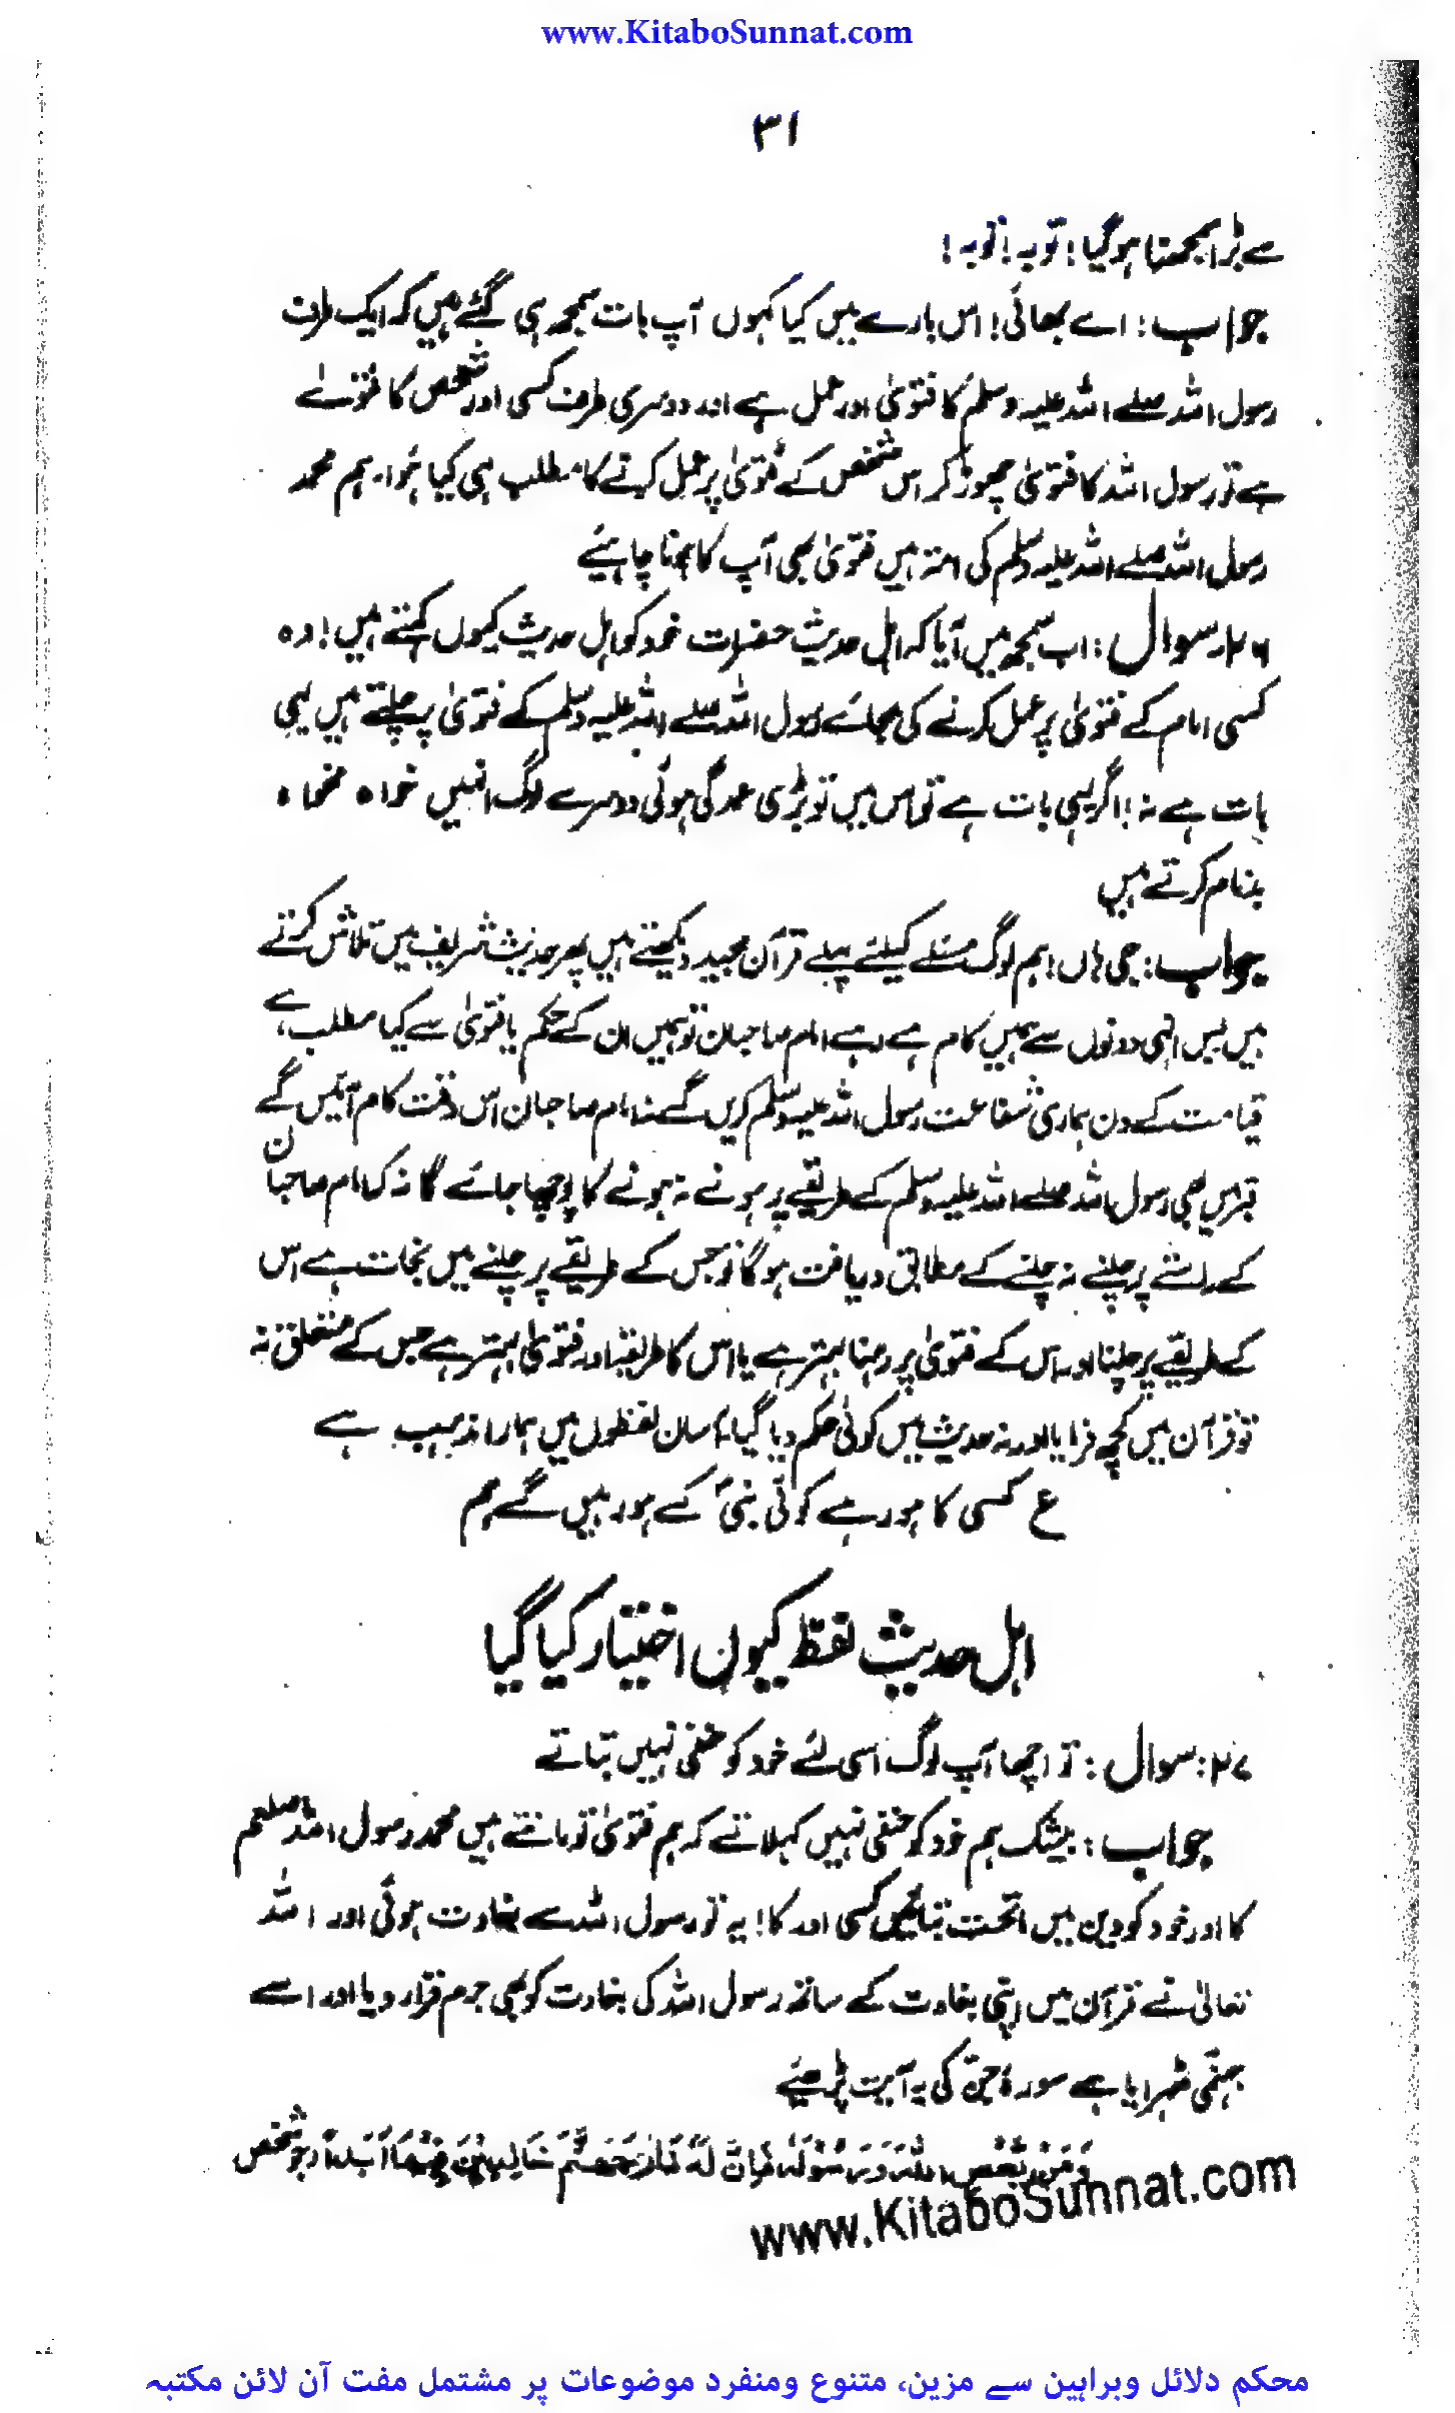 www.KitaboSunnat.com
۳۱
سے بڑا سمجھنا ہو گیا! توبہ! توبہ!
جواب: اے بھائی! اس بارے میں کیا کہوں آپ بات سمجھ ہی گئے ہیں کہ ایک طرف
رسول اللہ صلے اللہ علیہ وسلم کا فتویٰ اور عمل ہے اور دوسری طرف کسی اور شخص کا فتوےٰ
ہے تو رسول اللہ کا فتویٰ چھوڑ کر اس شخص کے فتویٰ پر عمل کرنے کا مطلب ہی کیا ہُوا۔ ہم محمد
رسول اللہ صلے اللہ علیہ وسلم کی امتہ ہیں فتویٰ بھی آپ کا ہونا چاہئیے
۲۶؍ سوال: اب سمجھ میں آیا کہ اہل حدیث حضرات خود کو اہل حدیث کیوں کہتے ہیں! وہ
کسی امام کے فتویٰ پر عمل کرنے کی بجائے رسول اللہ صلے اللہ علیہ وسلم کے فتویٰ پہ چلتے ہیں یہی
بات ہے نہ! اگر یہی بات ہے تو اس میں تو بڑی عمدگی ہوئی دوسرے لوگ انہیں خواہ مخواہ
بدنام کرتے ہیں
جواب: جی ہاں! ہم لوگ مسئلے کیلئے پہلے قرآن مجید دیکھتے ہیں پھر حدیث شریف میں تلاش کرتے
ہیں بس انہی دونوں سے ہمیں کام ہے رہے امام صاحبان تو ہمیں ان کے حکم یا فتویٰ سے کیا مطلب ہے
قیامت کے دن ہماری شفاعت رسول اللہ علیہ وسلم کریں گے نہ امام صاحبان اس وقت کام آئیں گے
قبر میں بھی رسول اللہ صلے اللہ علیہ وسلم کے طریقے پر ہونے نہ ہونے کا پوچھا جائے گا نہ کہ امام صاحبان
کے راستے پر چلنے نہ چلنے کے مطابق دریافت ہو گا تو جس کے طریقے پر چلنے میں نجات ہے اس
کے طریقے پر چلنا اور اس کے فتویٰ پر رہنا بہتر ہے یا اس کا طریقہ اور فتویٰ بہتر ہے جس کے متعلق نہ
تو قرآن میں کچھ فرمایا اور نہ حدیث میں کوئی حکم دیا گیا! آسان لفظوں میں ہمارا مذہب ہے
ع کسی کا ہو رہے کوئی نبیؐ کے ہو رہیں گے ہم
اہل حدیث لفظ کیوں اختیار کیا گیا
۲۷: سوال: تو اچھا آپ لوگ اسی لئے خود کو حنفی نہیں بتاتے
جواب: بیشک ہم خود کو حنفی نہیں کہلاتے کہ ہم فتویٰ تو مانتے ہیں محمد رسول اللہ صلعم
کا اور خود کو دین میں ماتحت بتائیں کسی اور کا! یہ تو رسول اللہ سے بغاوت ہوئی اور اللہ
تعالیٰ نے قرآن میں اپنی بغاوت کے ساتھ رسول اللہ کی بغاوت کو بھی جرم قرار دیا اور اسے
جہنمی ٹھہرایا ہے سورۂ جنّ کی یہ آیت پڑھئیے
وَمَنْ يَّعْصِ اللّٰهَ وَرَسُوْلَهٗ فَاِنَّ لَهٗ نَارَ جَهَنَّمَ خَالِدِيْنَ فِيْهَا اَبَدًا۔ جو شخص
www.KitaboSunnat.com
محکم دلائل وبراہین سے مزین، متنوع ومنفرد موضوعات پر مشتمل مفت آن لائن مکتبہ